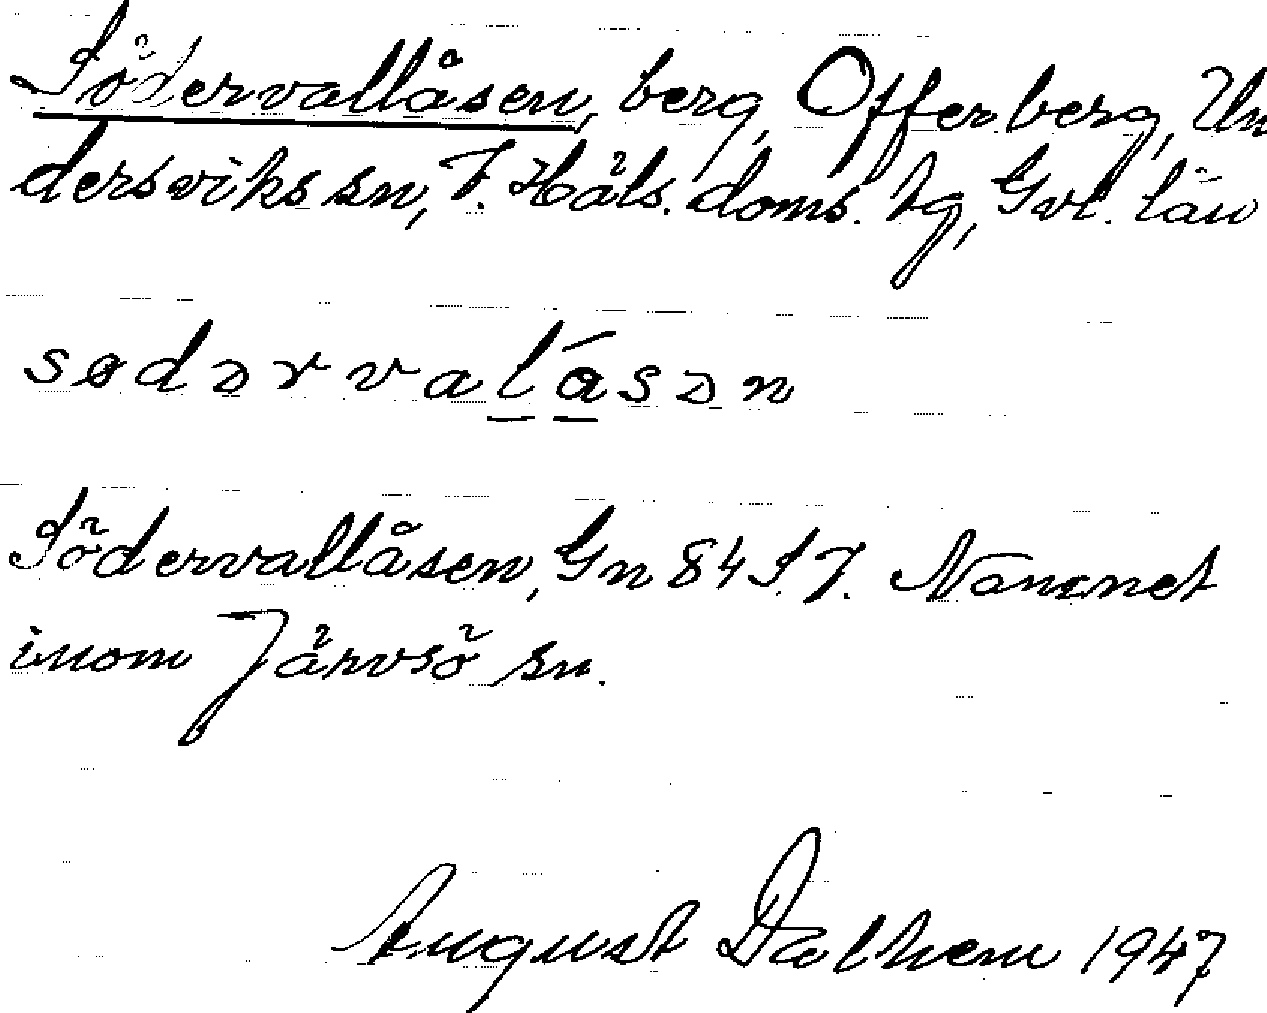 Södervallåsen, berg, Offerberg, Un
dersviks sn, V. Häls. doms. tg, Gvl. län
sødərvalåsən
Södervallåsen, Gn 84 S.V. Namnet
inom Järvsö sn.
August Dalhem 1947